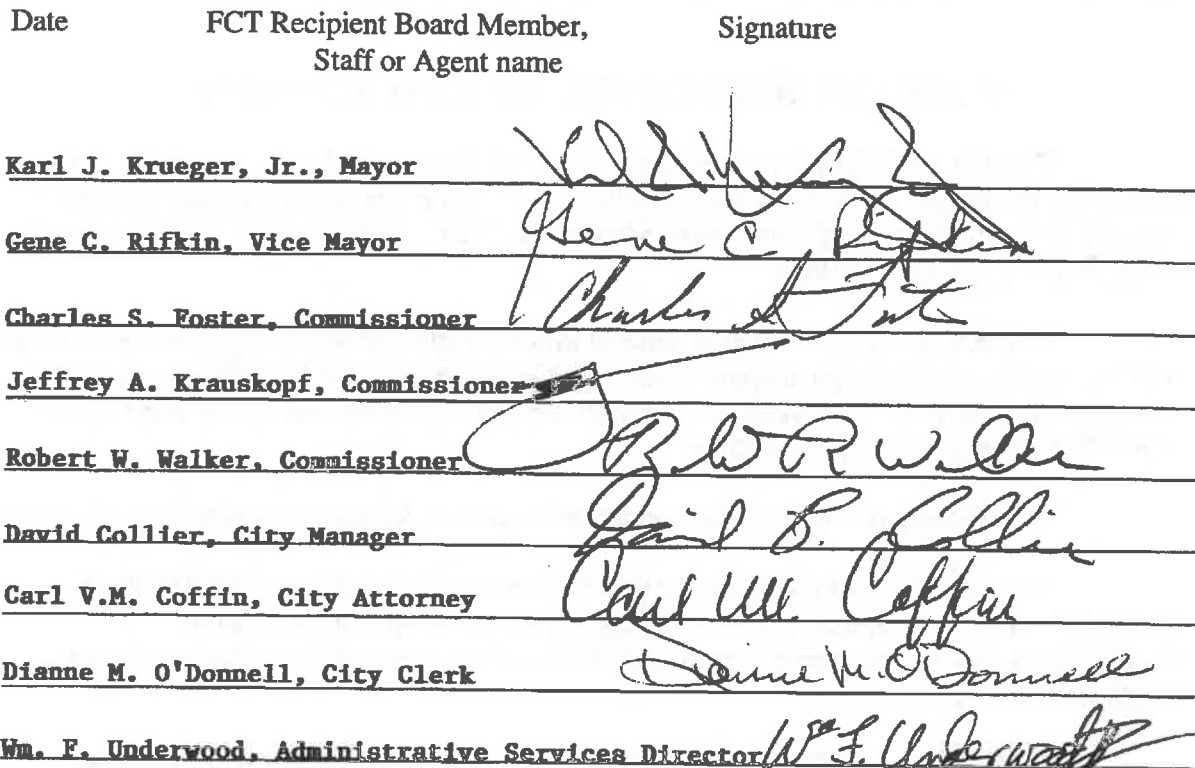 Date FCT Recipient Board Member, Signature
Staff or Agent name
Karl J. Krueger, Jr., Mayor
Gene C. Rifkin, Vice Mayor Gene C. Rifkin
Charles S. Foster, Commissioner Charles S Foster
Jeffrey A. Krauskopf, Commissioner
Robert W. Walker, Commissioner
David Collier, City Manager David B. Collier
Carl V.M. Coffin, City Attorney Carl VM. Coffin
Dianne M. O'Donnell, City Clerk Dianne M. O'Donnell
Wm. F. Underwood, Administrative Services Director Wm F. Underwood